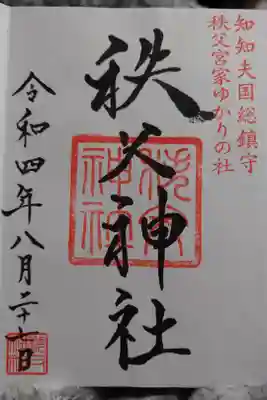 知知夫国総鎮守
秩父宮家ゆかりの社
秩父神社
秩父
神社
令和四年八月二十七日